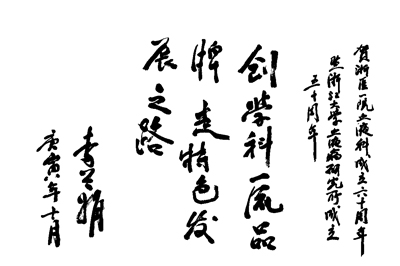 贺浙医一院血液科成立六十周年
暨浙江大学血液病研究所成立
三十周年
创学科一流品
牌走特色发
展之路
李兰娟
庚寅年十月